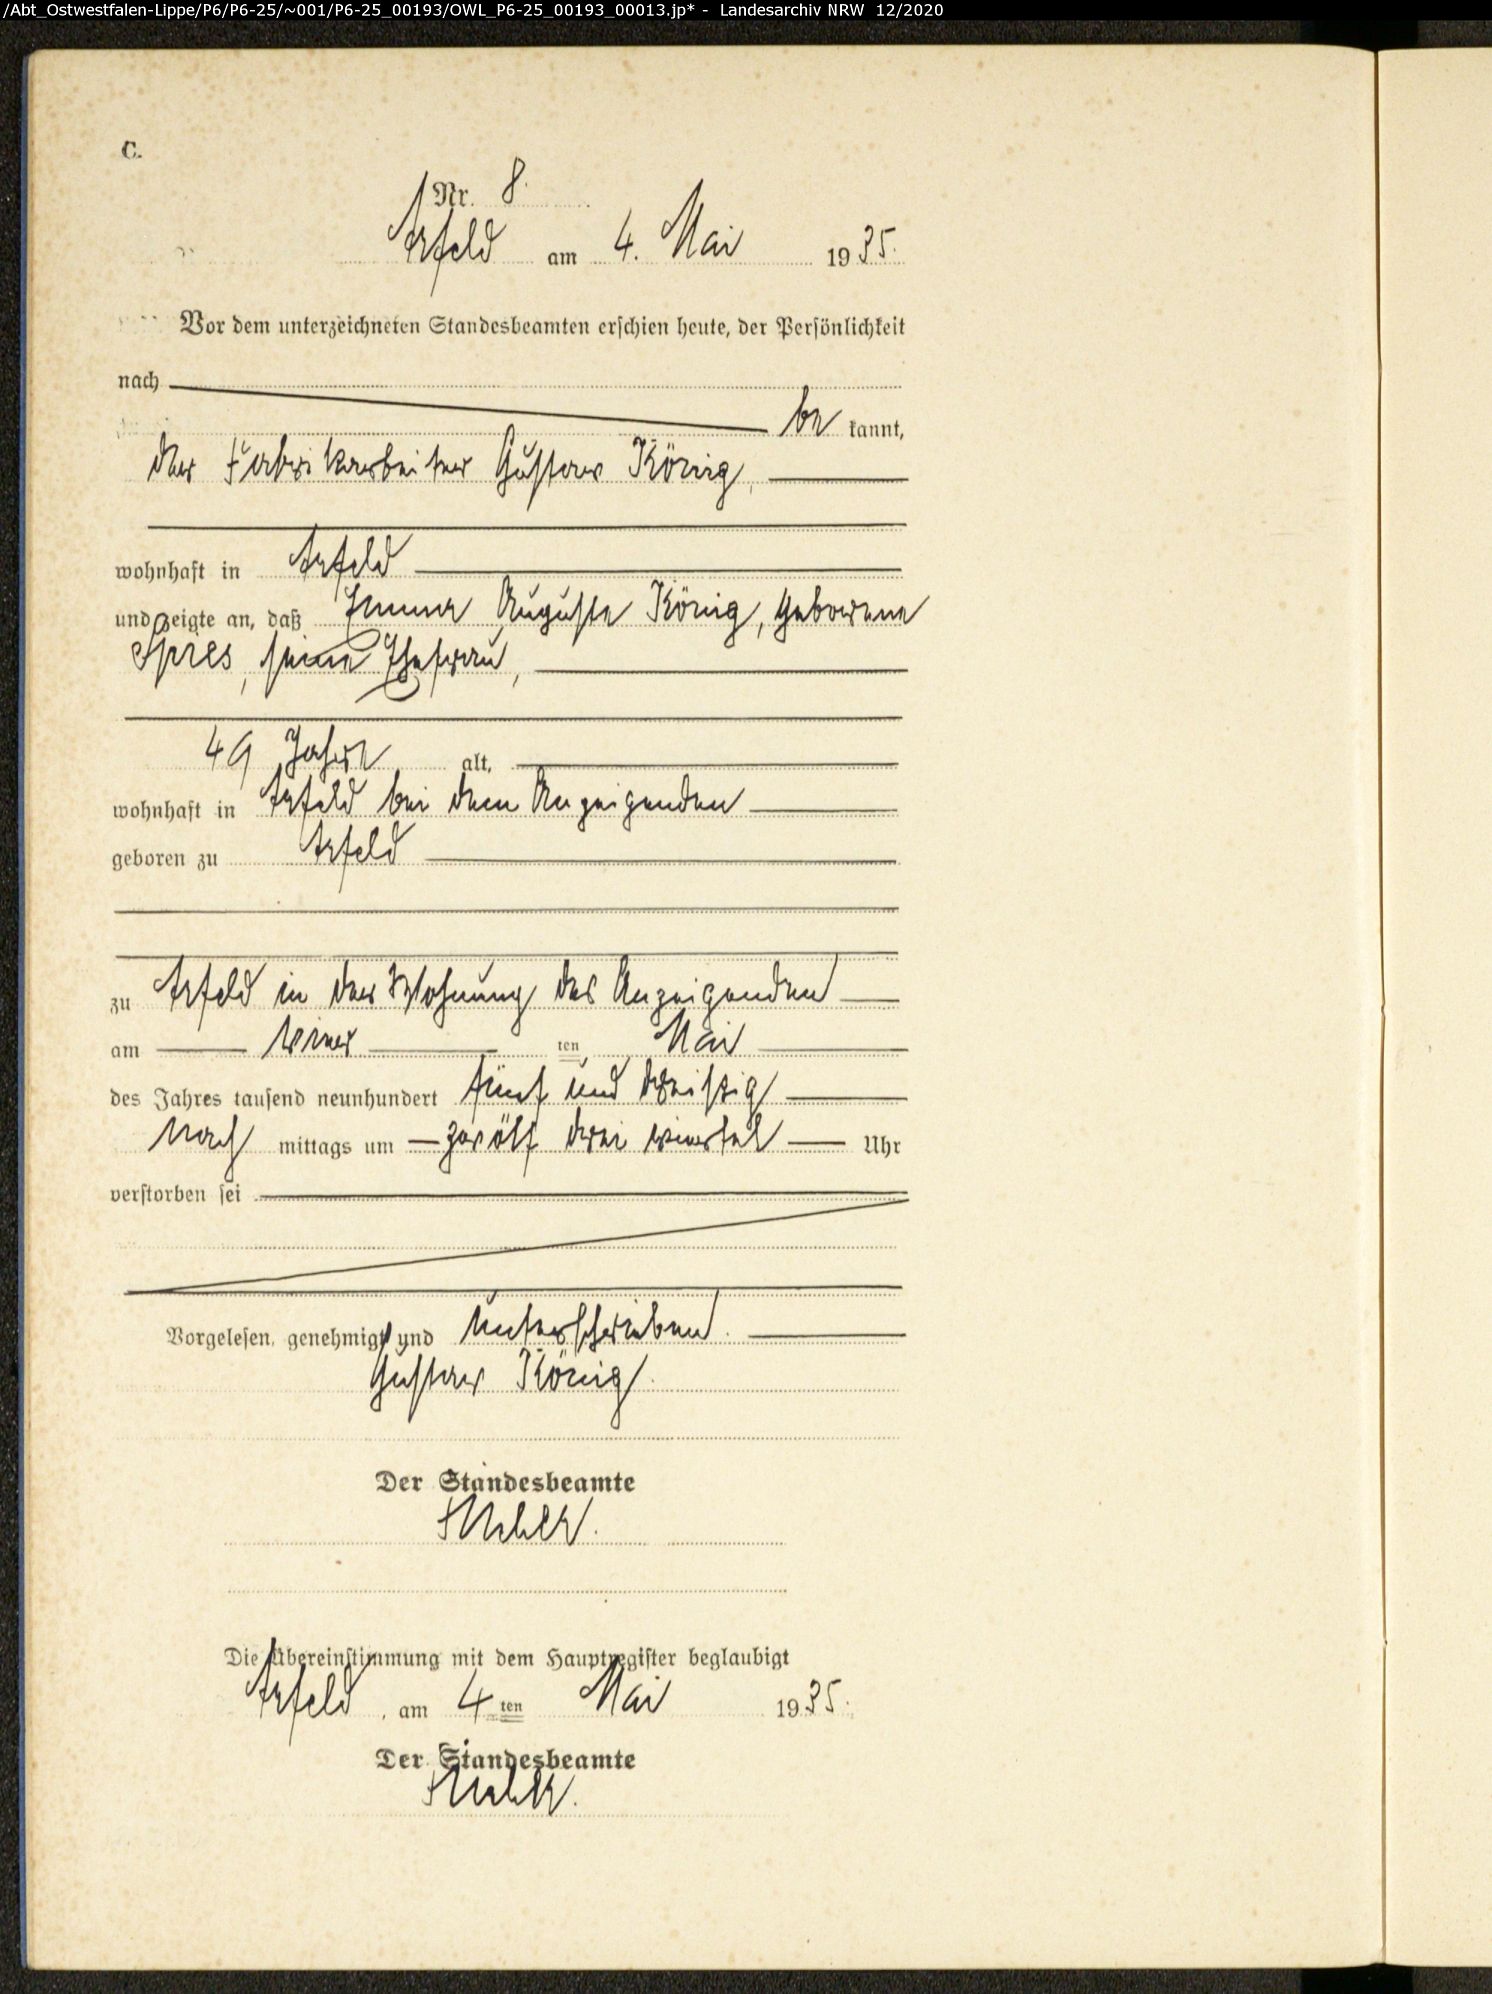 /Abt_Ostwestfalen-Lippe/P6/P6-25/~001/P6-25_00193/OWL_P6-25_00193_00013.jp* - Landesarchiv NRW 12/2020
C.
Nr. 8.
Arfeld am 4. Mai 1935.
Vor dem unterzeichneten Standesbeamten erschien heute, der Persönlichkeit
nach
be kannt,
der Fabrikarbeiter Gustav König,
wohnhaft in Arfeld
und zeigte an, daß Emma Auguste König, geborene
Spies, seine Ehefrau,
49 Jahre alt,
wohnhaft in Arfeld bei dem Anzeigenden
geboren zu Arfeld
zu Arfeld in der Wohnung des Anzeigenden
am vier ten Mai
des Jahres tausend neunhundert fünf und dreißig
Nach mittags um zwölf drei viertel Uhr
verstorben sei
Vorgelesen, genehmigt und unterschrieben.
Gustav König.
Der Standesbeamte
Die Übereinstimmung mit dem Hauptregister beglaubigt
Arfeld, am 4 ten Mai 1935.
Der Standesbeamte